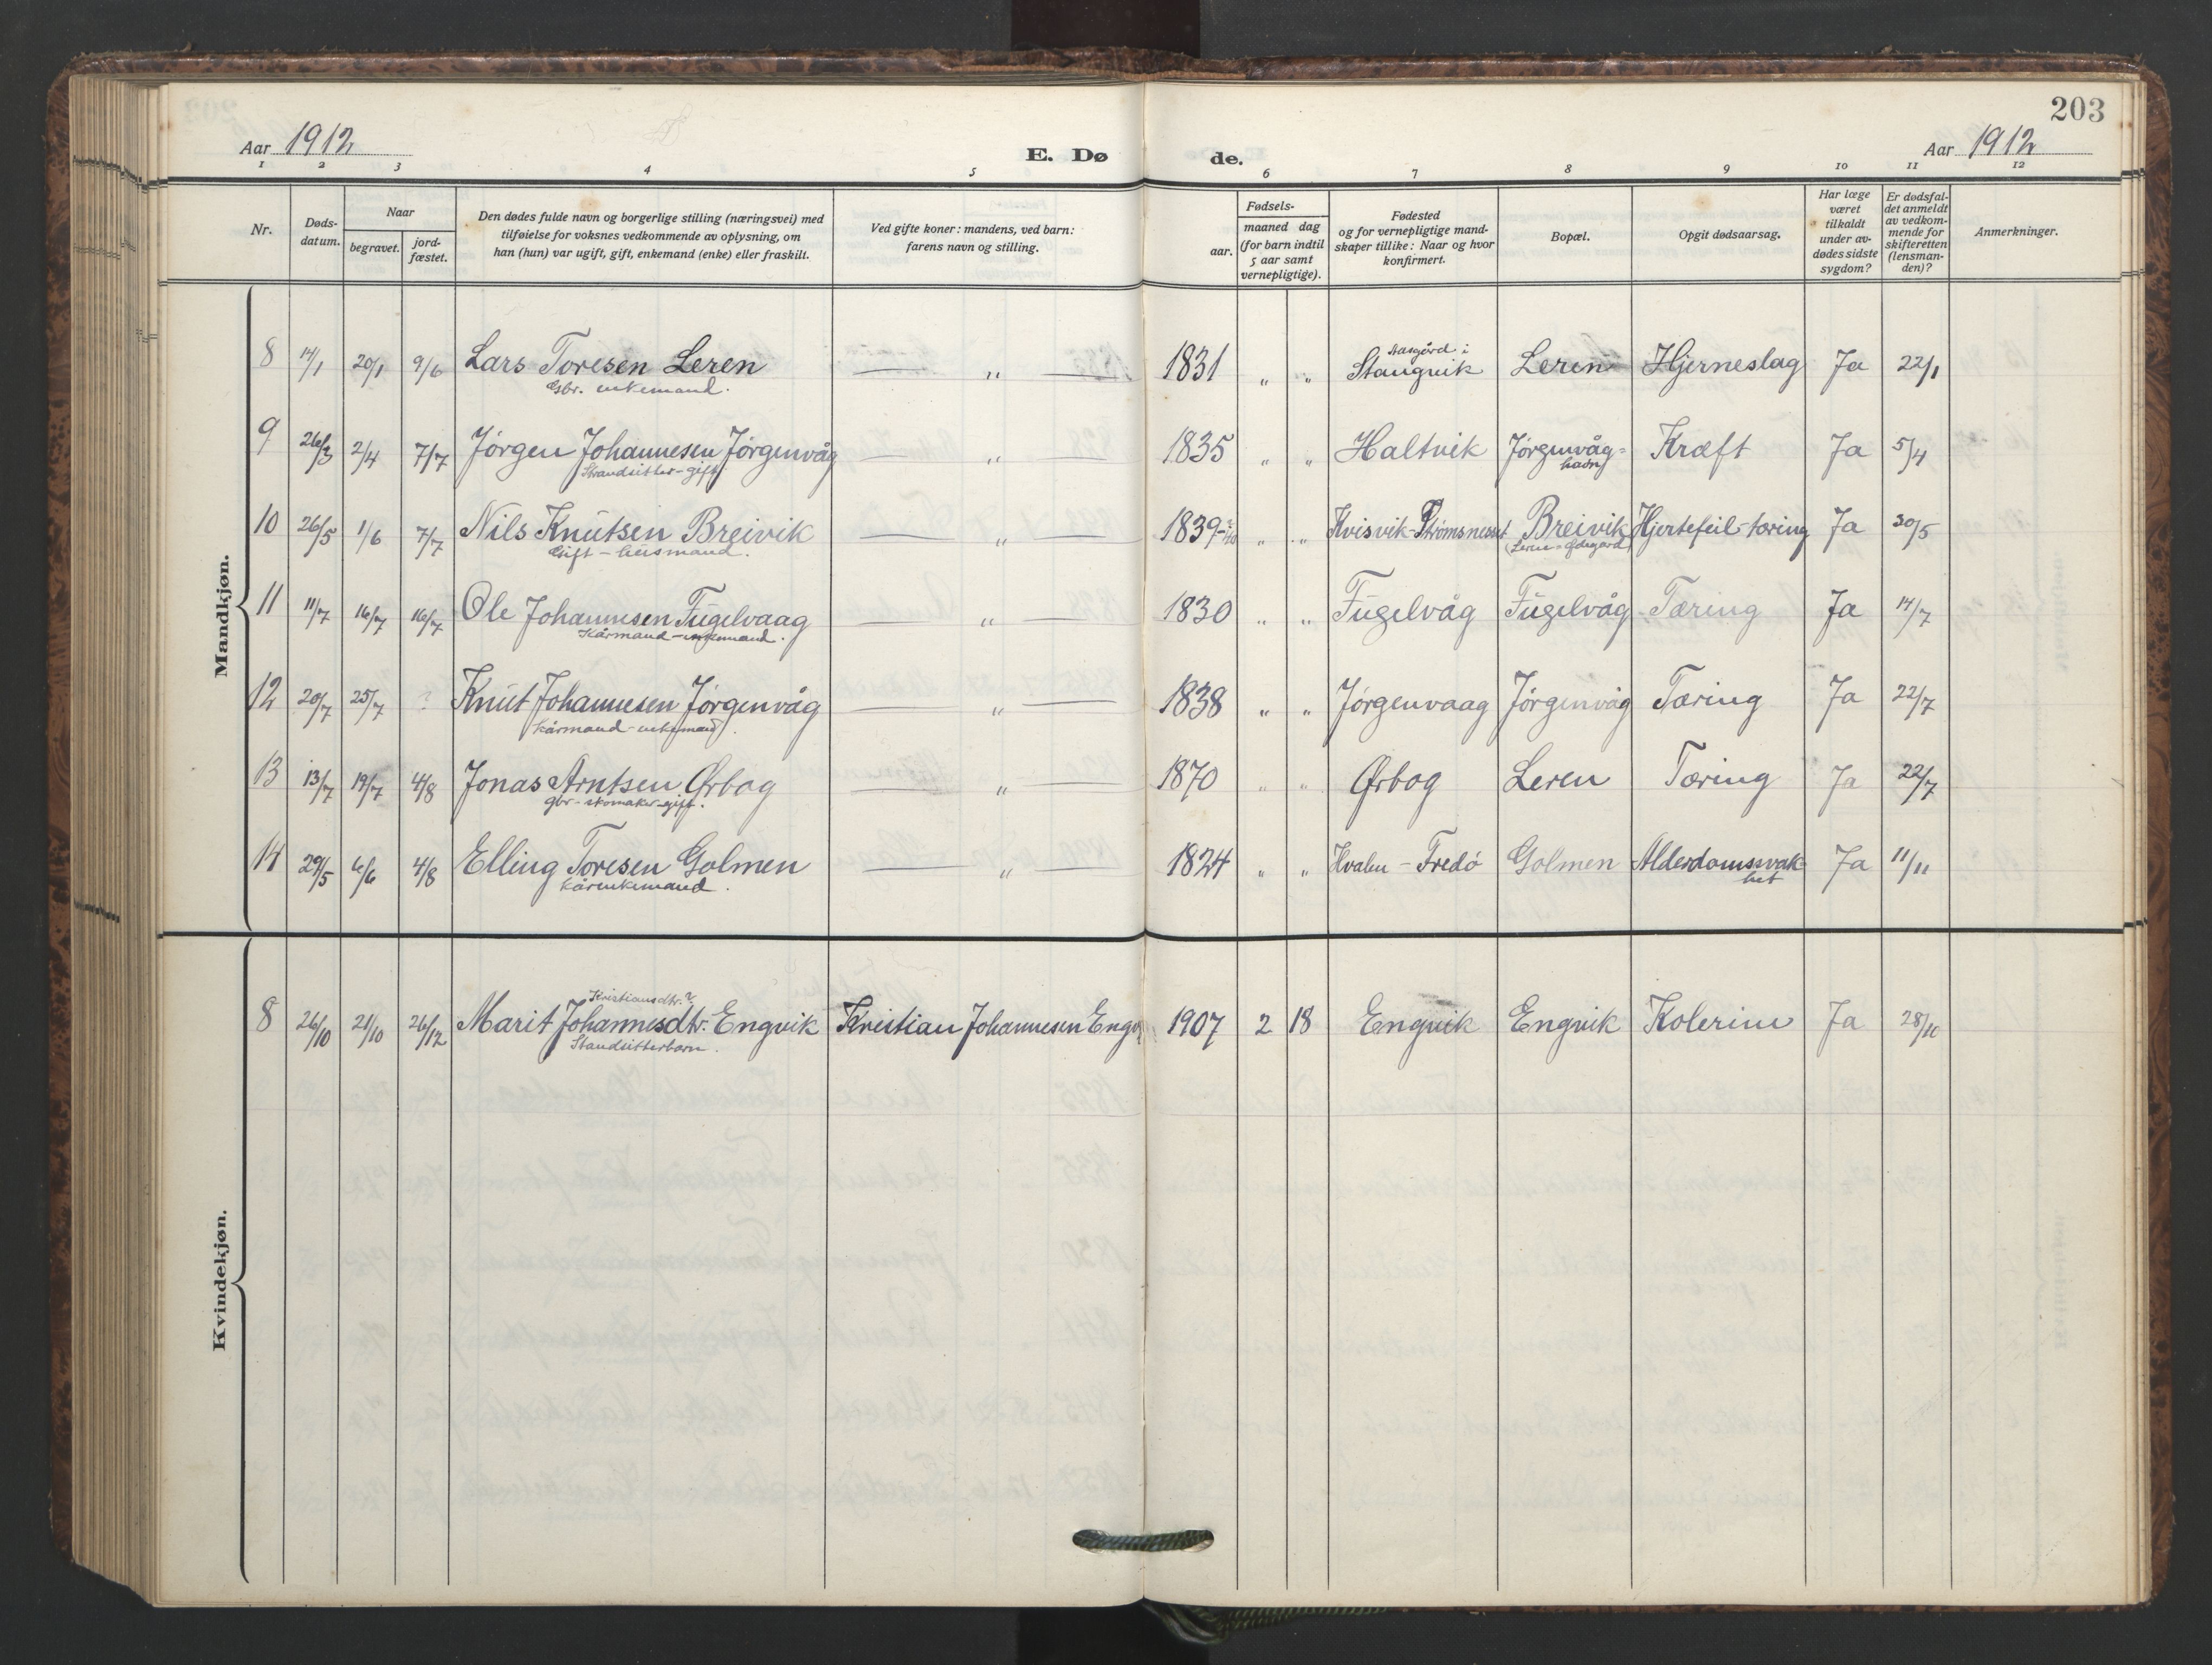 203
Aar 1912
E. Dø
de.
Aar 1912
1 2 3 4 5 6 7 8 9 10 11 12
Nr.
Døds-
datum.
Naar
begravet.
jord-
fæstet.
Den dødes fulde navn og borgerlige stilling (næringsvei) med
tilføielse for voksnes vedkommende av oplysning, om
han (hun) var ugift, gift, enkemand (enke) eller fraskilt.
Ved gifte koner: mandens, ved barn:
farens navn og stilling.
Fødsels-
aar.
maaned dag
(for barn indtil
5 aar samt
vernepligtige).
Fødested
og for vernepligtige mand-
skaper tillike: Naar og hvor
konfirmert.
Bopæl.
Opgit dødsaarsag.
Har læge
været
tilkaldt
under av-
dødes sidste
sygdom?
Er dødsfal-
det anmeldt
av vedkom-
mende for
skifteretten
(lensman-
den)?
Anmerkninger.
Mandkjøn.
8 14/1 20/1 9/6 Lars Toresen Leren — „ — 1831 „ „ Aasgård i Stangvik Leren Hjerneslag Ja 22/1
Gbr. enkemand.
9 26/3 2/4 7/7 Jørgen Johannesen Jørgenvåg — „ — 1835 „ „ Haltvik Jørgenvåg- Kræft Ja 5/4
Strandsitter-gift havn
10 26/5 1/6 7/7 Nils Knutsen Breivik — „ — 1839 „ „ Kvisvik-Strømsnesset Breivik Hjertefeil-tæring Ja 30/5
Gift-husmand. (Leren-Ødegård)
11 11/7 16/7 16/7 Ole Johannesen Fugelvaag — „ — 1830 „ „ Fugelvåg Fugelvåg Tæring Ja 14/7
Kårmand-enkemand.
12 20/7 25/7 ? Knut Johannesen Jørgenvåg — „ — 1838 „ „ Jørgenvaag Jørgenvåg Tæring Ja 22/7
Kårmand-enkemand.
13 13/7 19/7 4/8 Jonas Arntsen Ørbog — „ — 1870 „ „ Ørbog Leren Tæring Ja 22/7
gbr-skomaker-gift.
14 29/5 6/6 4/8 Elling Toresen Golmen — „ — 1824 „ „ Hvalen-Fredø Golmen Alderdomssvak- Ja 11/11
Kårenkemand. het
Kvindekjøn.
Kristiansdtr.?
8 26/10 21/10 26/12 Marit Johannesdtr. Engvik Kristian Johannesen Engv. 1907 2 18 Engvik Engvik Kolerine Ja 28/10
Standsitterbarn.